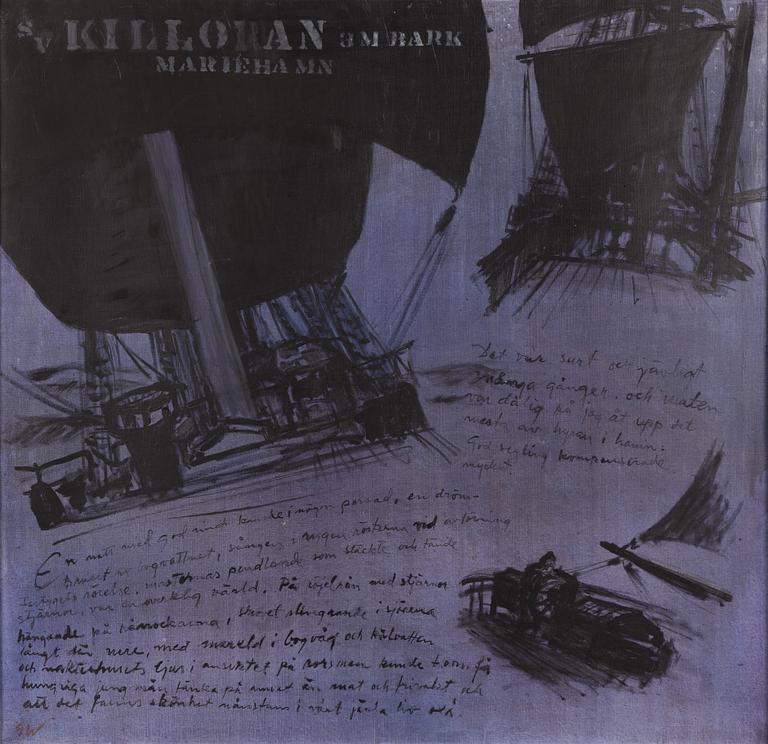 S/V KILLORAN 3M BARK
MARIEHAMN
Det var surt och jävligt
många gånger. och maten
var dålig så jag åt upp det
mesta av hyran i hamn.
God segling kompenserade
mycket.
En natt med god vind kunde i någon passad, en dröm-
bruset av bogvattnet, sången i riggen rösterna vid avlösning
fartygets rörelse. masternas pendlande som släckte och tände
stjärnor var en overklig värld. På röjelrån med stjärnor
hängande på rånockarna, skrovet slingrande i sjöarna
långt där nere, med mareld i bogvåg och kölvatten
och nakterhusets ljus i ansiktet på rorsman kunde t.o.m få
hungriga unga män tänka på annat än mat och frivakt och
att det fanns skönhet nånstans i vårt jävla liv
GW